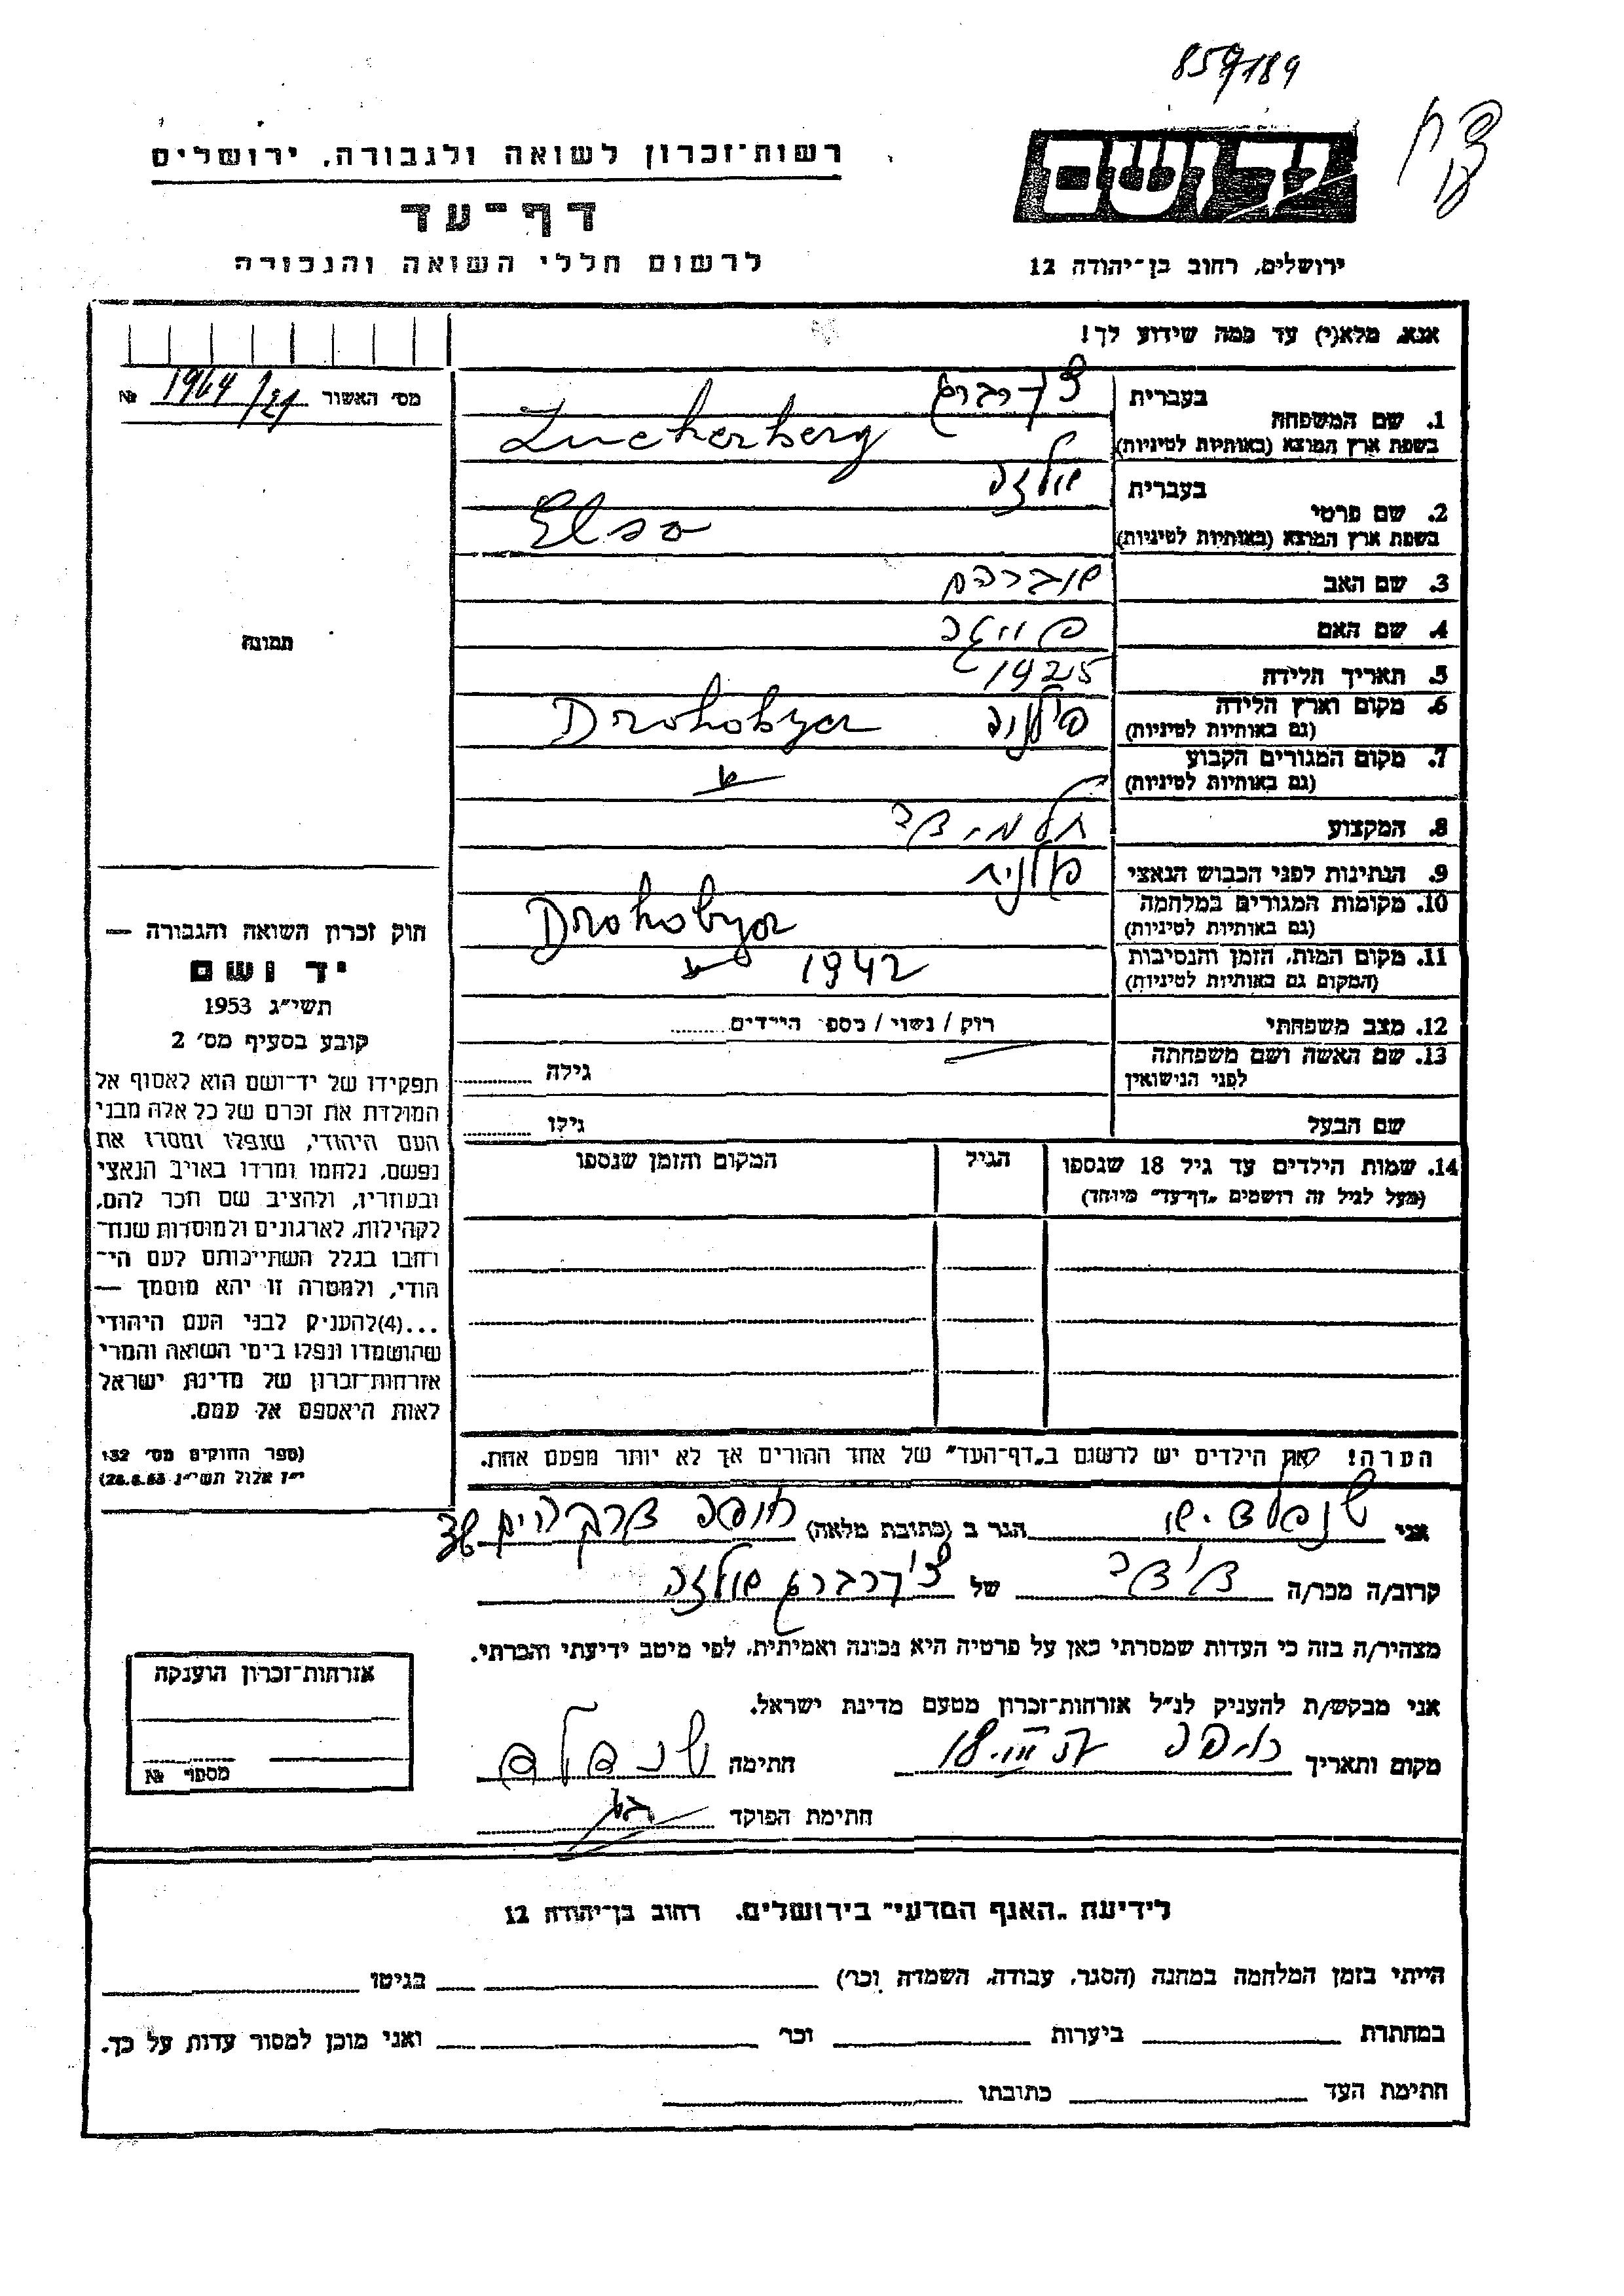 857/189
רשות־זכרון לשואה ולגבורה, ירושלים
דף־עד
לרשום חללי השואה והגבורה
יד ושם
ירושלים, רחוב בן־יהודה 12
אנא, מלא(י) עד כמה שידוע לך!
מס׳ האשור 1964/21 №
תמונה
1. שם המשפחה בעברית צוקרברג
בשפת ארץ המוצא (באותיות לטיניות) Zucherberg
2. שם פרטי בעברית אלזה
בשפת ארץ המוצא (באותיות לטיניות) Elsa
3. שם האב אברהם
4. שם האם
5. תאריך הלידה 1925
6. מקום וארץ הלידה (גם באותיות לטיניות) פולניה Drohobycz
7. מקום המגורים הקבוע (גם באותיות לטיניות)
8. המקצוע תלמידה
9. הנתינות לפני הכבוש הנאצי פולנית
10. מקומות המגורים במלחמה (גם באותיות לטיניות) Drohobycz
11. מקום המות, הזמן והנסיבות (המקום גם באותיות לטיניות) 1942
12. מצב משפחתי רוק / נשוי / מספר הילדים
13. שם האשה ושם משפחתה לפני הנישואין גילה
שם הבעל גילו
14. שמות הילדים עד גיל 18 שנספו הגיל המקום והזמן שנספו
(מעל לגיל זה רושמים „דף־עד״ מיוחד)
הערה! את הילדים יש לרשום ב„דף־העד״ של אחד ההורים אך לא יותר מפעם אחת.
חוק זכרון השואה והגבורה —
יד ושם
תשי״ג 1953
קובע בסעיף מס׳ 2
תפקידו של יד־ושם הוא לאסוף אל
המולדת את זכרם של כל אלה מבני
העם היהודי, שנפלו ומסרו את
נפשם, נלחמו ומרדו באויב הנאצי
ובעוזריו, ולהציב שם וזכר להם,
לקהילות, לארגונים ולמוסדות שנח־
רחבו בגלל השתייכותם לעם הי־
הודי, ולמטרה זו יהא מוסמך —
...(4)להעניק לבני העם היהודי
שהושמדו ונפלו בימי השואה והמרי
אזרחות־זכרון של מדינת ישראל
לאות היאספם אל עמם.
(ספר החוקים מס׳ 132
י״ז אלול תשי״ג 28.8.53)
אני הגר ב (כתובת מלאה) חיפה
קרוב/ה מכר/ה דודה של צוקרברג אלזה
מצהיר/ה בזה כי העדות שמסרתי כאן על פרטיה היא נכונה ואמיתית, לפי מיטב ידיעתי והכרתי.
אני מבקש/ת להעניק לנ״ל אזרחות־זכרון מטעם מדינת ישראל.
מקום ותאריך חיפה חתימה
חתימת הפוקד
אזרחות־זכרון הוענקה
מספר №
לידיעת „האגף המדעי״ בירושלים, רחוב בן־יהודה 12
הייתי בזמן המלחמה במחנה (הסגר, עבודה, השמדה וכר׳) בגיטו
במחתרת ביערות וכר׳ ואני מוכן למסור עדות על כך.
חתימת העד כתובתו